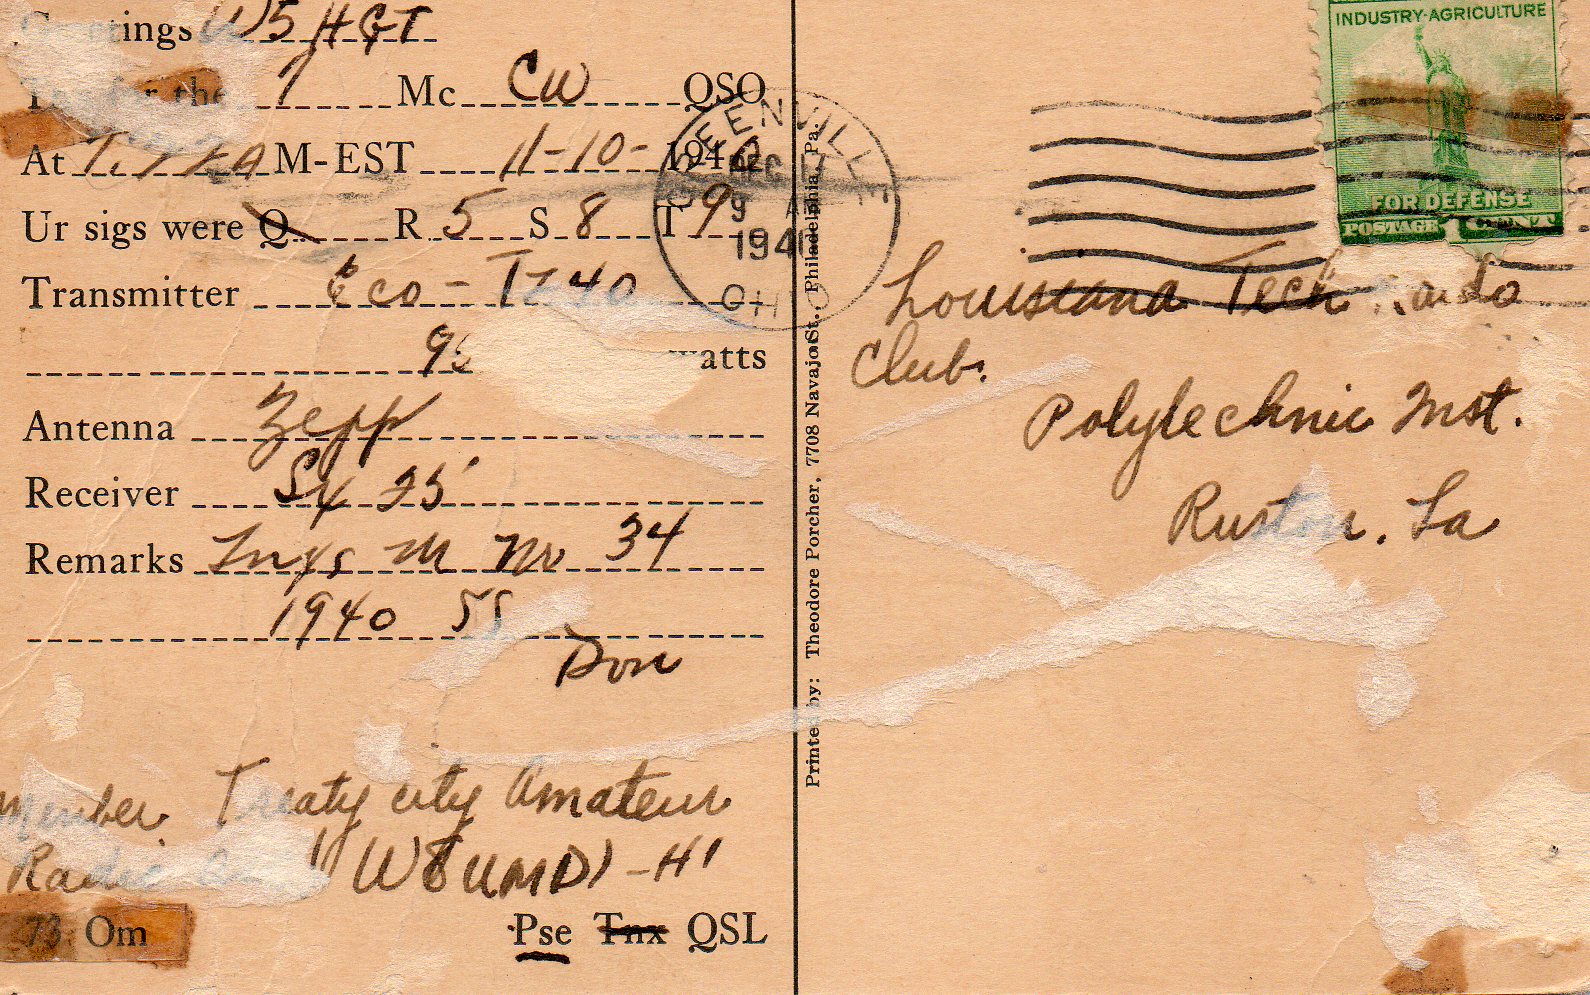 Greetings W5HGT
for the 7 Mc CW QSO
At M-EST 11-10-1940
Ur sigs were Q R 5 S 8 T 9
Transmitter Eco - Tz 40
watts
Antenna Zepp
Receiver SX 25
Remarks Nr 34
1940 SS
Don
Member Treaty city Amateur
Radio (W8UMD) - HI
73 Om Pse Tnx QSL
Printed by: Theodore Porcher, 7708 Navajo St., Philadelphia, Pa.
GREENVILLE
DEC 17
9 AM
1940
OHIO
INDUSTRY·AGRICULTURE
FOR DEFENSE
POSTAGE 1 CENT
Louisiana Tech Radio
Club.
Polytechnic Inst.
Ruston, La